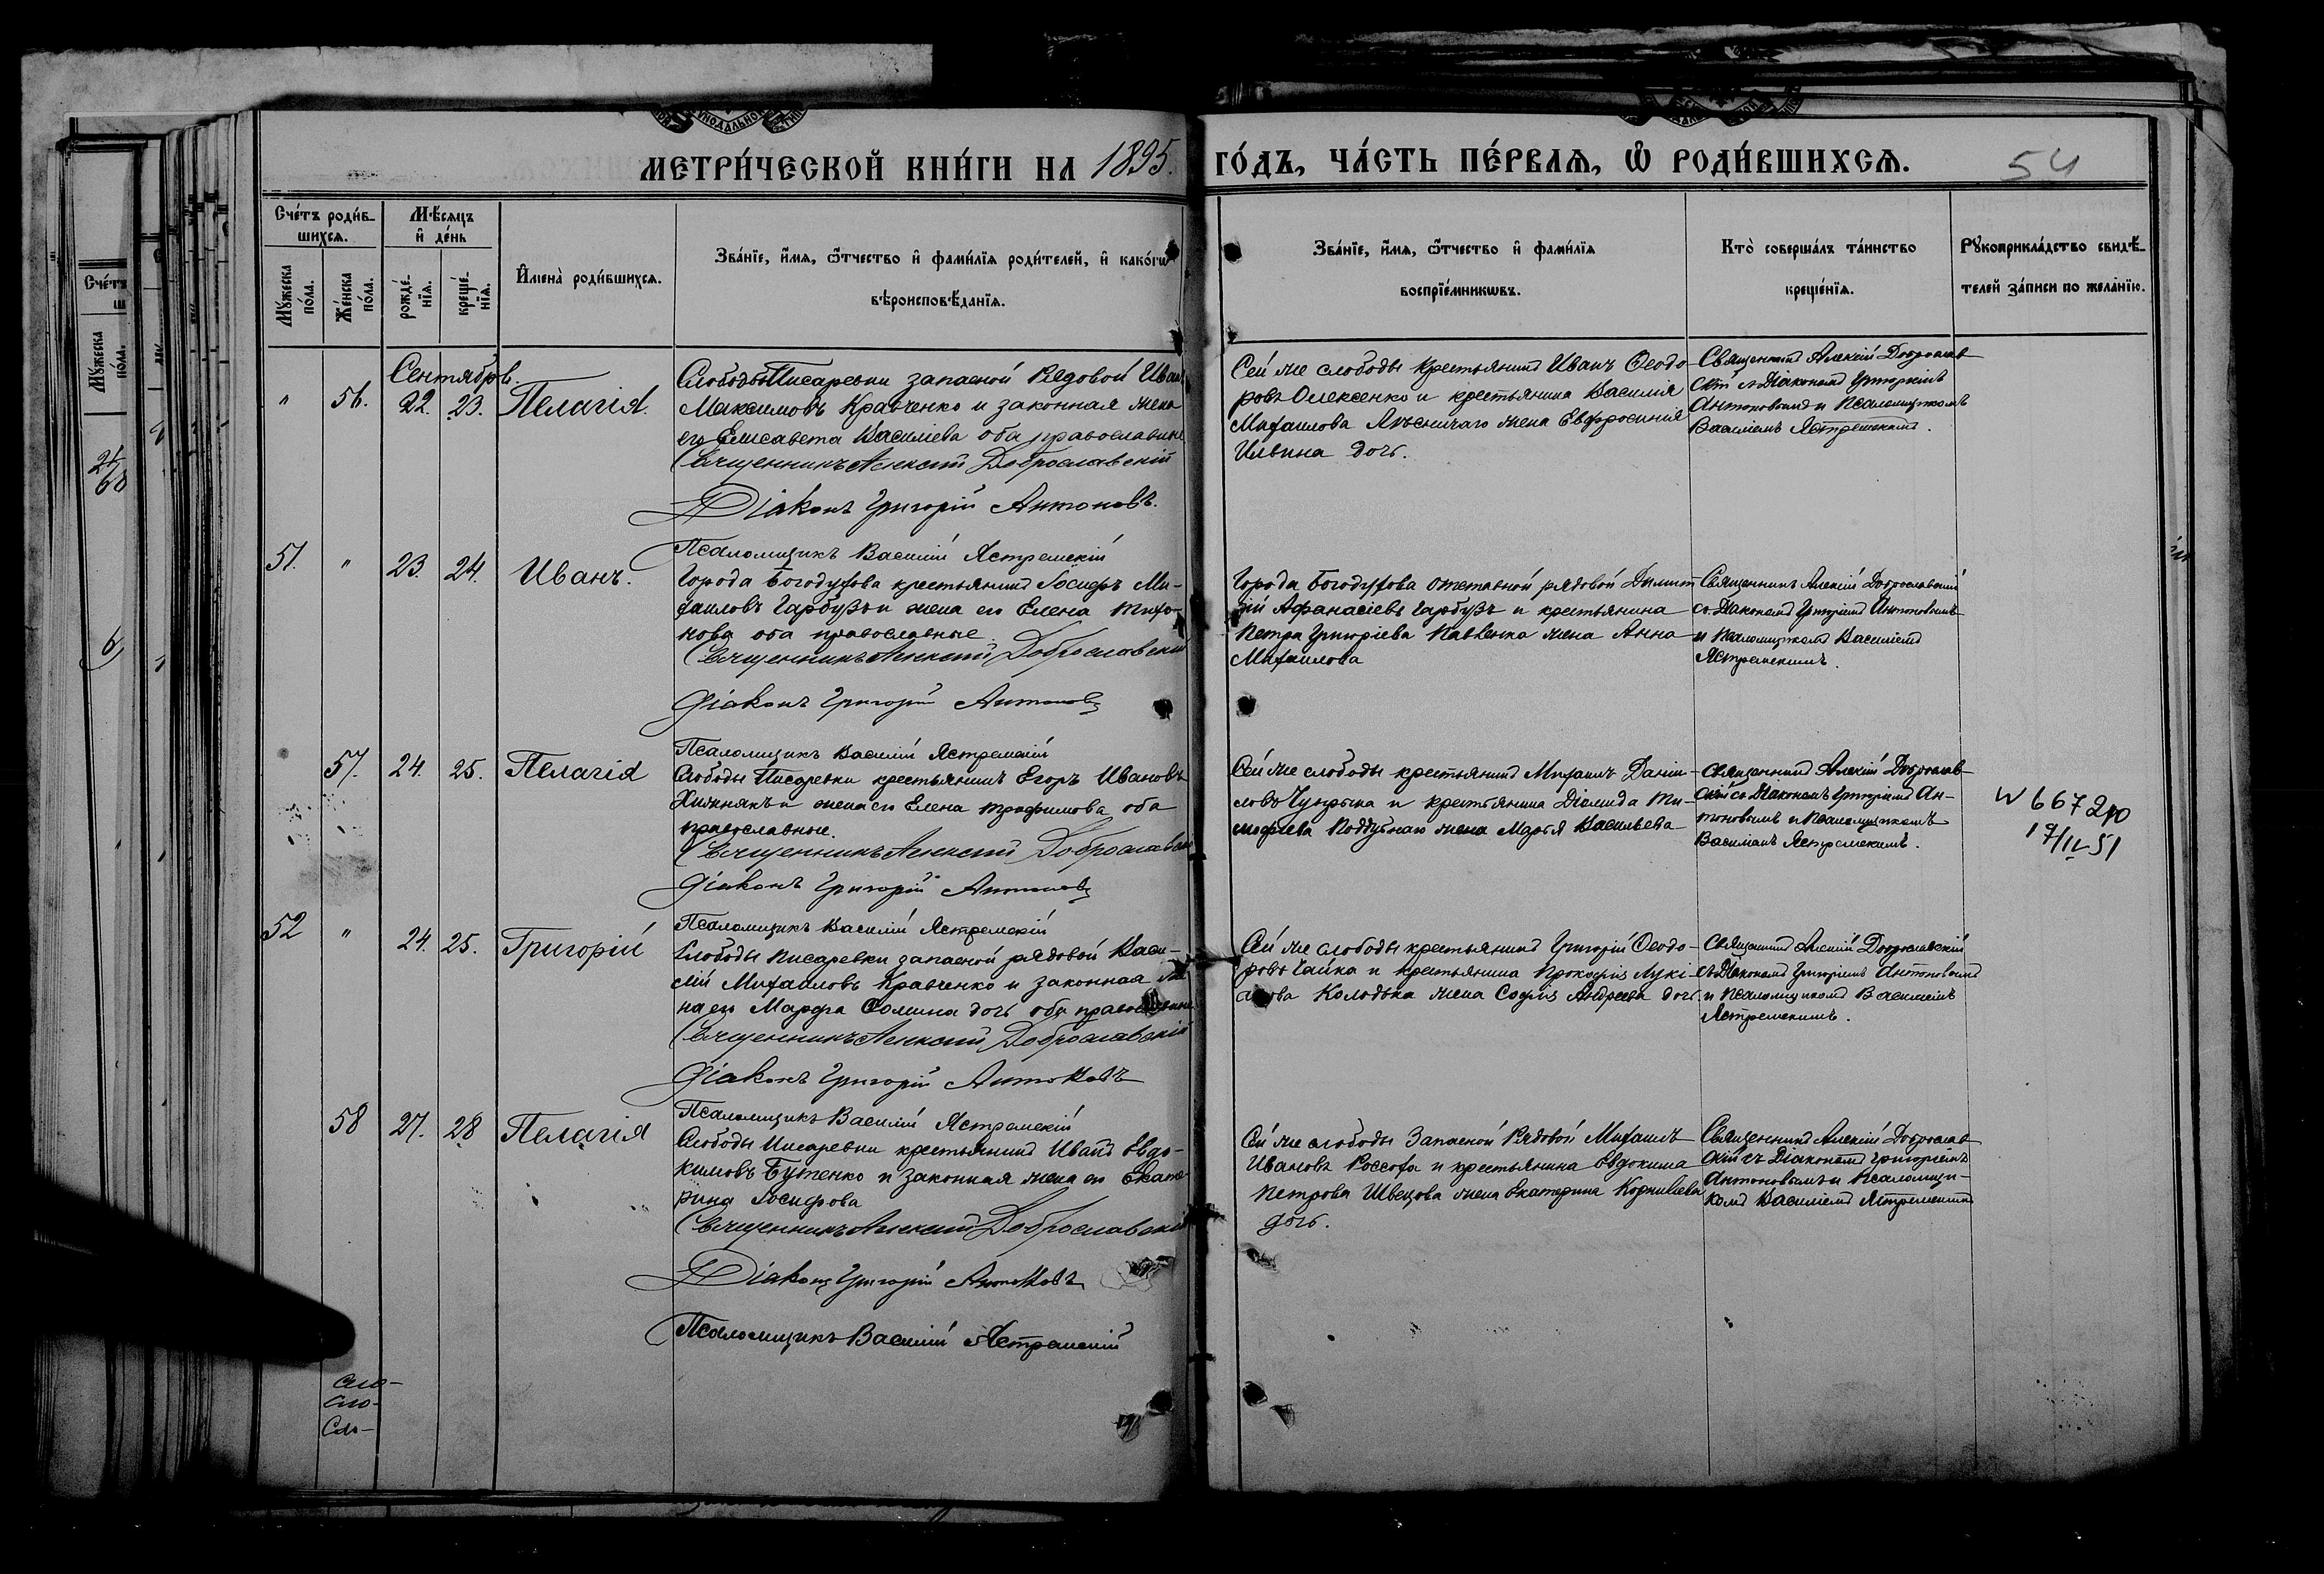 МЕТРИ́ЧЕСКОЙ КНИ́ГИ НА 1895. ГО́ДЪ, ЧА́СТЬ ПЕ́РВАѦ, Ѡ҆ РОДИ́ВШИХСѦ.
54
Сче́тъ роди́в-
шихсѧ.
Мꙋ́жеска по́ла.
Же́нска по́ла.
Мѣ́сѧцъ
и҆ де́нь
рожде́-
нїѧ.
креще́-
нїѧ.
И҆мена̀ роди́вшихсѧ.
Зва́нїе, и҆́мѧ, ѻ҆́тчество и҆ фами́лїѧ роди́телей, и҆ како́гѡ
вѣроисповѣ́данїѧ.
Зва́нїе, и҆́мѧ, ѻ҆́тчество и҆ фами́лїѧ
воспрїе́мникѡвъ.
Кто̀ соверша́лъ та́инство
креще́нїѧ.
Рꙋкоприкла́дство свидѣ́-
телей за́писи по жела́нїю.
Сентябрь.
" 56. 22. 23. Пелагія.
Слободы Писаревки запасной Рядовой Иванъ
Максимовъ Кравченко и законная жена
его Елисавета Василіева оба православные
Священникъ Алексій Доброславскій
Діаконъ Григорій Антоновъ.
Псаломщикъ Василій Ястремскій
Сей же слободы крестьянинъ Иванъ Ѳеодо-
ровъ Олексенко и крестьянина Василія
Михаилова жена Евфросинія
Ильина дочь.
Священникъ Алексій Доброслав-
скій съ Діакономъ Григоріемъ
Антоновымъ и Псаломщикомъ
Василіемъ Ястремскимъ.
51. " 23. 24. Иванъ.
Города Богодухова крестьянинъ Іосифъ Ми-
хаиловъ Гарбузъ и жена его Елена Тихо-
нова оба православные
Священникъ Алексій Доброславскій
Діаконъ Григорій Антоновъ
Псаломщикъ Василій Ястремскій
Города Богодухова отставной рядовой Димит-
рій Афанасіевъ Гарбузъ и крестьянина
Петра Григоріева Павленка жена Анна
Михаилова
Священникъ Алексій Доброславскій
съ Діакономъ Григоріемъ Антоновымъ
и Псаломщикомъ Василіемъ
Ястремскимъ.
57. 24. 25. Пелагія
Слободы Писаревки крестьянинъ Егоръ Ивановъ
Хижнякъ и жена его Елена Трофимова оба
православные.
Священникъ Алексій Доброславскій
Діаконъ Григорій Антоновъ
Псаломщикъ Василій Ястремскій
Сей же слободы крестьянинъ Михаилъ Даніи-
ловъ Чупрына и крестьянина Діомида Ти-
мофіева Поддубнаго жена Марѳа Васильева
Священникъ Алексій Доброслав-
скій съ Діакономъ Григоріемъ Ан-
тоновымъ и Псаломщикомъ
Василіемъ Ястремскимъ.
52 " 24. 25. Григорій
Слободы Писаревки запасной рядовой Васи-
лій Михаиловъ Кравченко и законная же-
на его Марфа Ѳомина дочь оба православные
Священникъ Алексій Доброславскій
Діаконъ Григорій Антоновъ
Псаломщикъ Василій Ястремскій
Сей же слободы крестьянинъ Григорій Ѳеодо-
ровъ Чайка и крестьянина Прокофія Лукі-
анова Колодька жена Софія Андреева дочь.
Священникъ Алексій Доброславскій
съ Діакономъ Григоріемъ Антоновымъ
и Псаломщикомъ Василіемъ
Ястремскимъ.
58 27. 28 Пелагія
Слободы Писаревки крестьянинъ Иванъ Евдо-
кимовъ Бутенко и законная жена его Екате-
рина Іосифова
Священникъ Алексій Доброславскій
Діаконъ Григорій Антоновъ
Псаломщикъ Василій Ястремскій
Сей же слободы Запасной Рядовой Михаилъ
Ивановъ Россоха и крестьянина Евдокима
Петрова Швецова жена Екатерина Корниліева
дочь.
Священникъ Алексій Доброслав-
скій съ Діакономъ Григоріемъ
Антоновымъ и Псаломщи-
комъ Василіемъ Ястремскимъ
Сло-